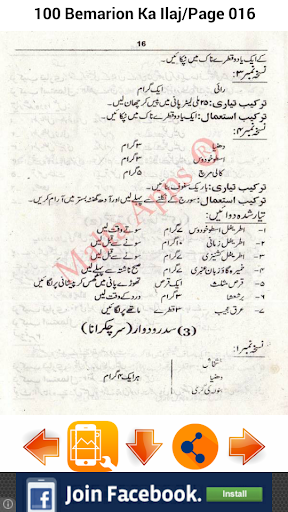 100 Bemarion Ka Ilaj/Page 016
16
کے ایک یا دو قطرے ناک میں ٹپکائیں۔
نسخہ نمبر۳:
رائی ایک گرام
ترکیب تیاری: ۲۵ ملی لیٹر پانی میں پیس کر چھان لیں۔
ترکیب استعمال: ایک یا دو قطرے ناک میں ٹپکائیں۔
نسخہ نمبر۴:
دھنیا ۳ گرام
اسطوخودوس ۳ گرام
کالی مرچ ۳ گرام
ترکیب تیاری: باریک سفوف بنائیں۔
ترکیب استعمال: سورج کے نکلنے سے پہلے لیں اور آدھ گھنٹہ بستر میں آرام کریں۔
تیار شدہ دوائیں:
۱۔ اطریفل اسطوخودوس ۷ گرام سوتے وقت لیں
۲۔ اطریفل زمانی ۷ گرام سونے سے قبل لیں
۳۔ اطریفل کشنیزی ۷ گرام سونے سے قبل لیں
۴۔ خمیرہ گاؤزبان عنبری ۵ گرام صبح ناشتے سے پہلے لیں
۵۔ قرص مثلث ایک قرص تھوڑے پانی میں گھس کر پیشانی پر لگائیں
۶۔ برشعشا ۳ گرام درد کے وقت لیں
۷۔ عرق عجیب ۳ قطرے ماتھے پر لگائیں
(3) سدر و دوار (سر چکرانا)
نسخہ نمبر۱:
خشخاش
دھنیا ہر ایک ۳ گرام
Maha Apps ®
Join Facebook.
Install